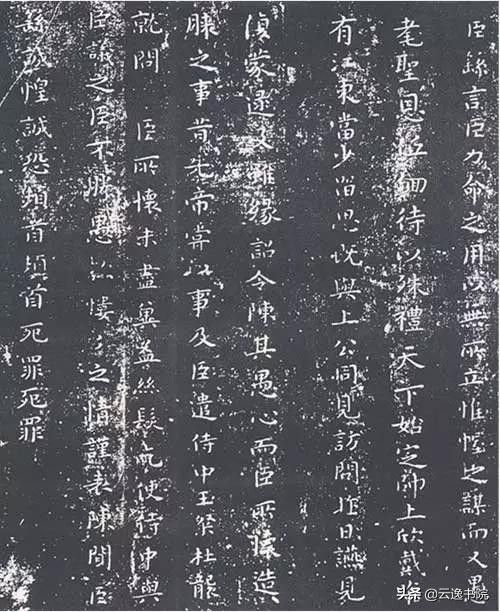 臣繇言臣力命之用以無所立惟幄之謀而又愚
耄聖恩低佪待以殊禮天下始定帥土欣戴唯
有江東當少留思既與上公同見訪問昨日讌見
蒙逮及雖緣詔令陳其愚心而臣所懷造
膝之事昔先帝嘗以事及臣遣侍中王粲杜襲
就問 臣所懷未盡冀益絲髮乞使侍中與
臣議之臣不勝愚款慺々之情謹表陳聞臣
繇誠惶誠恐頓首頓首死罪死罪
头条 @云逸书院